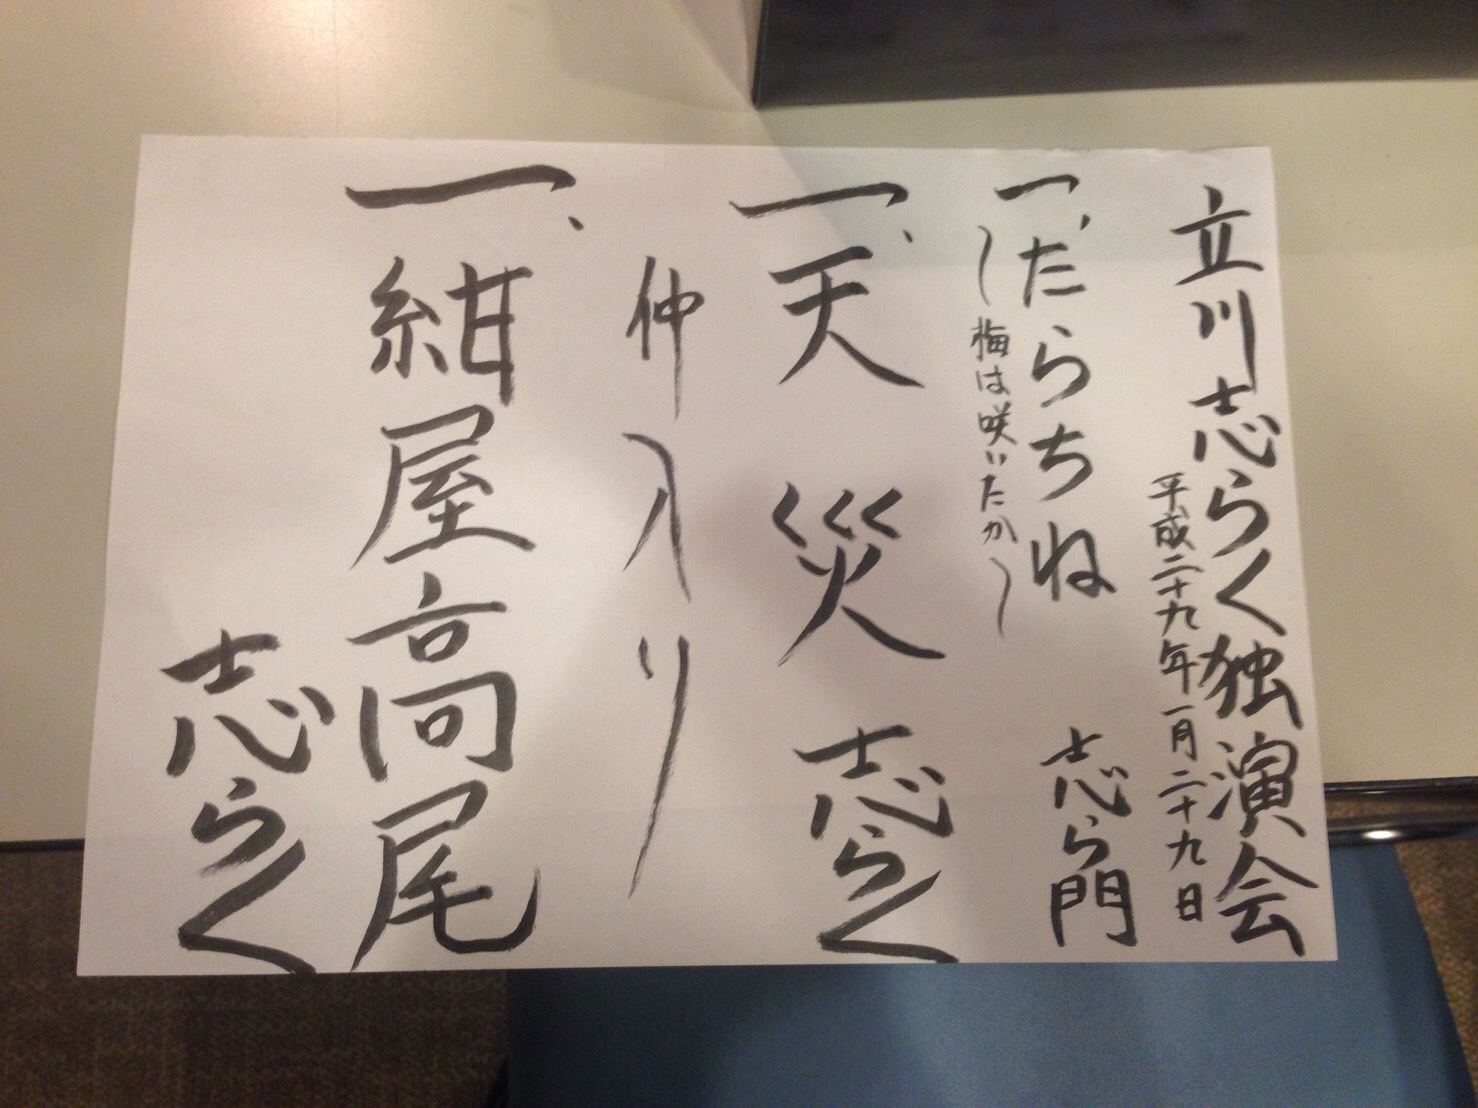 立川志らく独演会
平成二十九年一月二十九日
一、たらちね 志ら門
(梅は咲いたか)
一、天災 志らく
仲入り
一、紺屋高尾
志らく